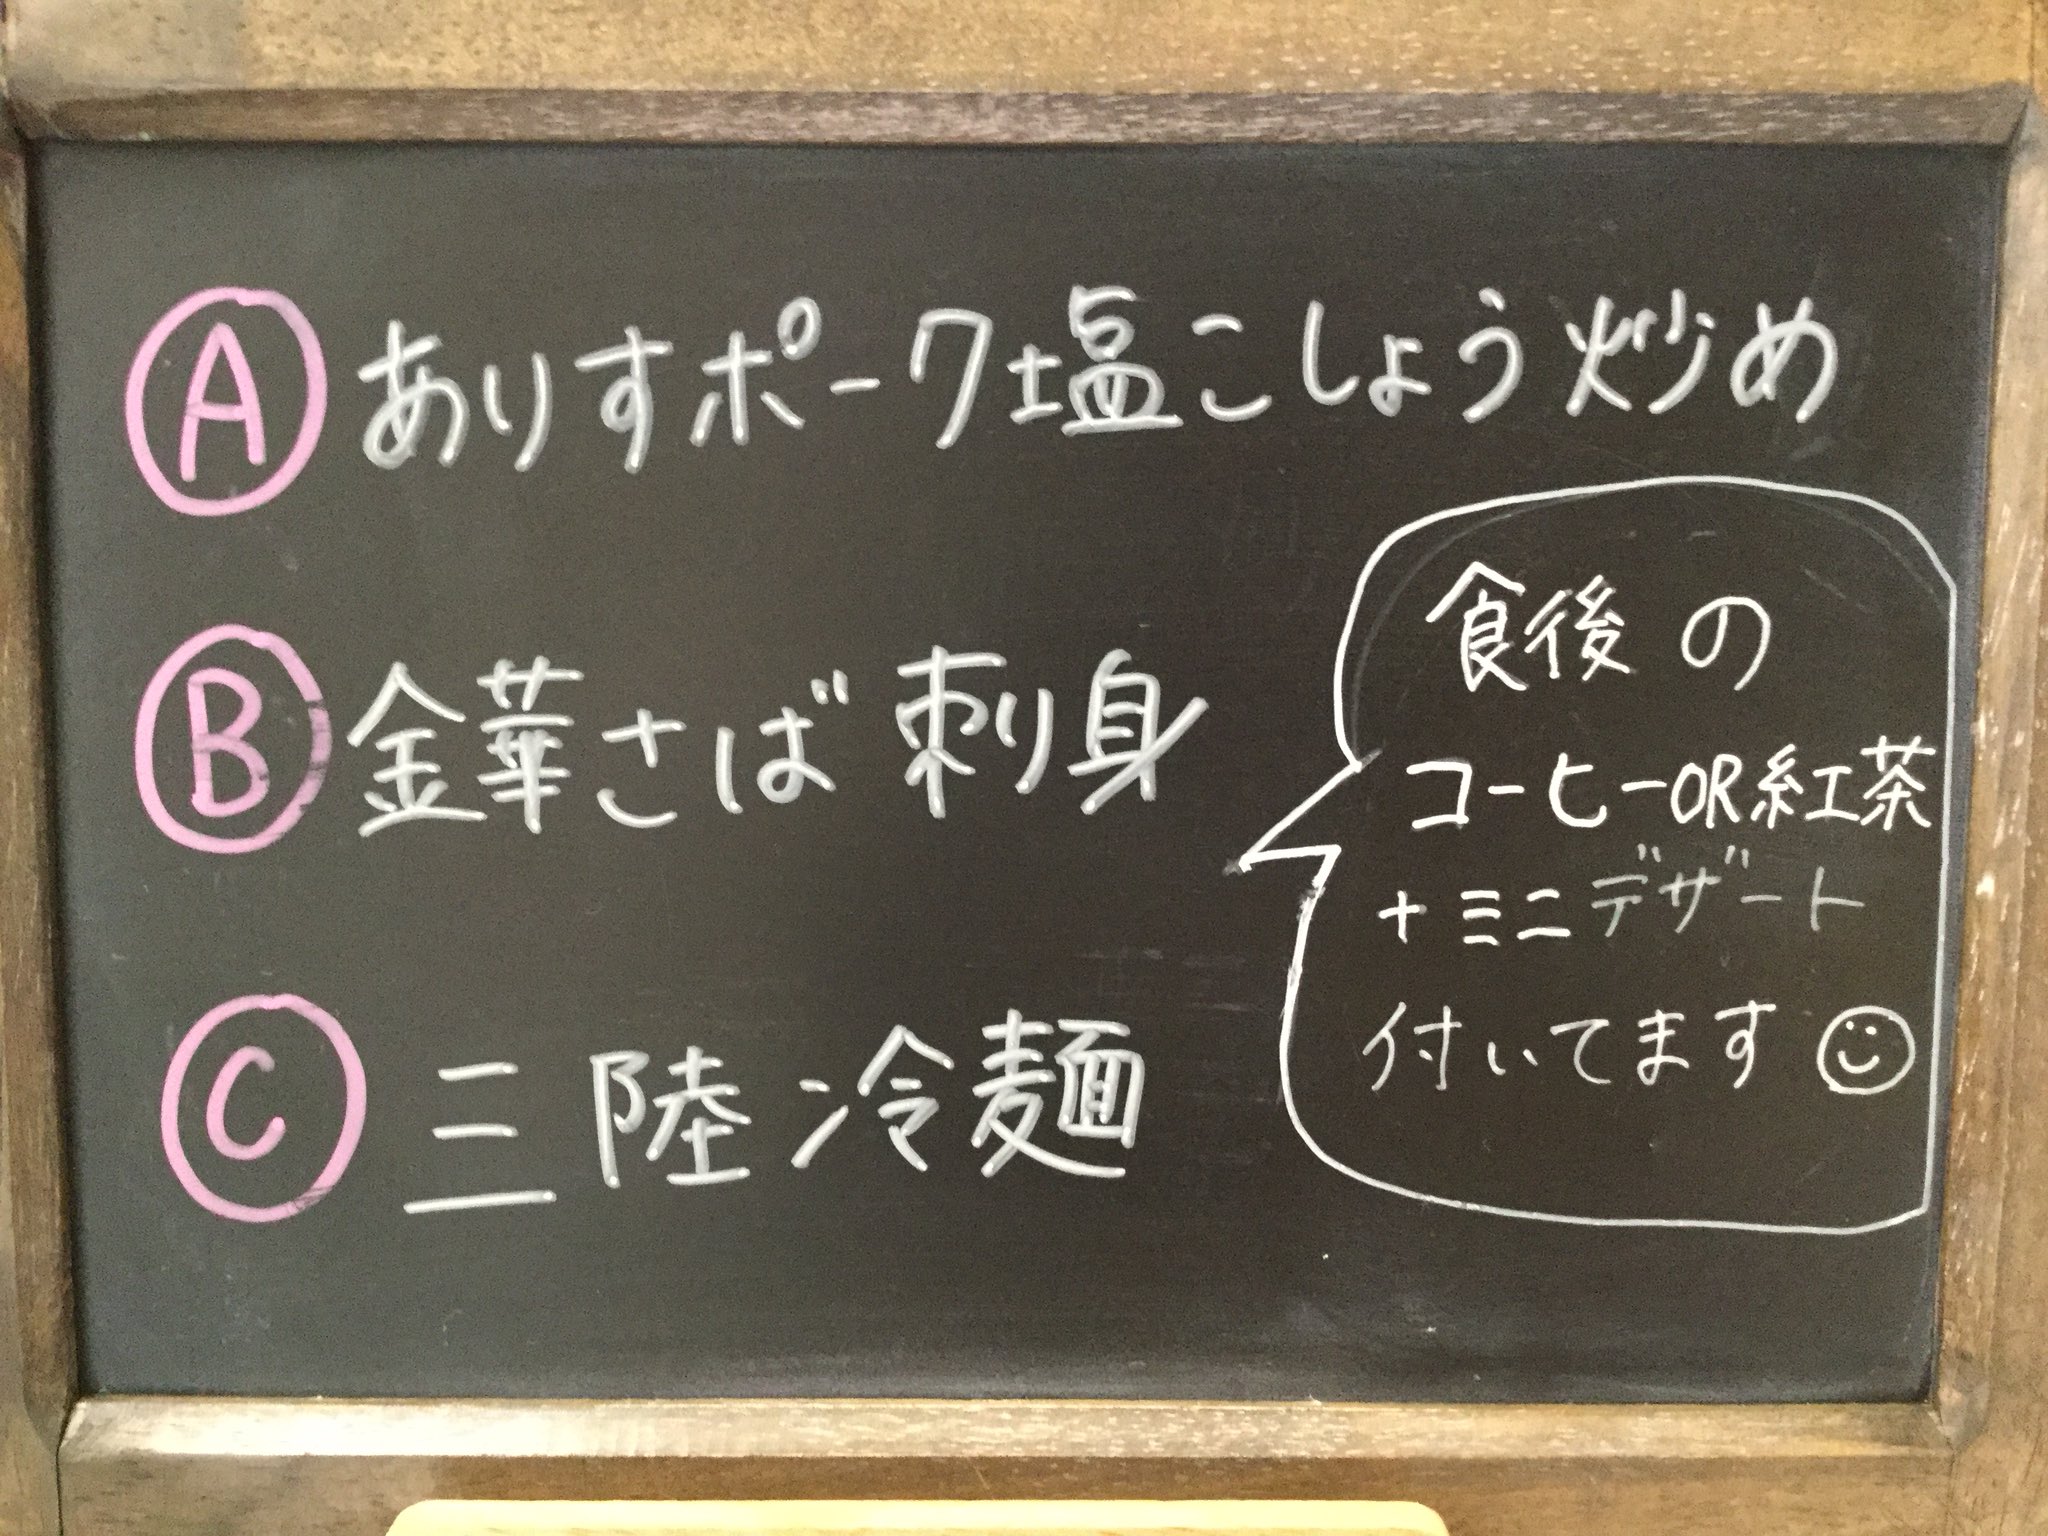 A ありすポーク塩こしょう炒め
B 金華さば刺身
C 三陸冷麺
食後の
コーヒーOR紅茶
+ミニデザート
付いてます